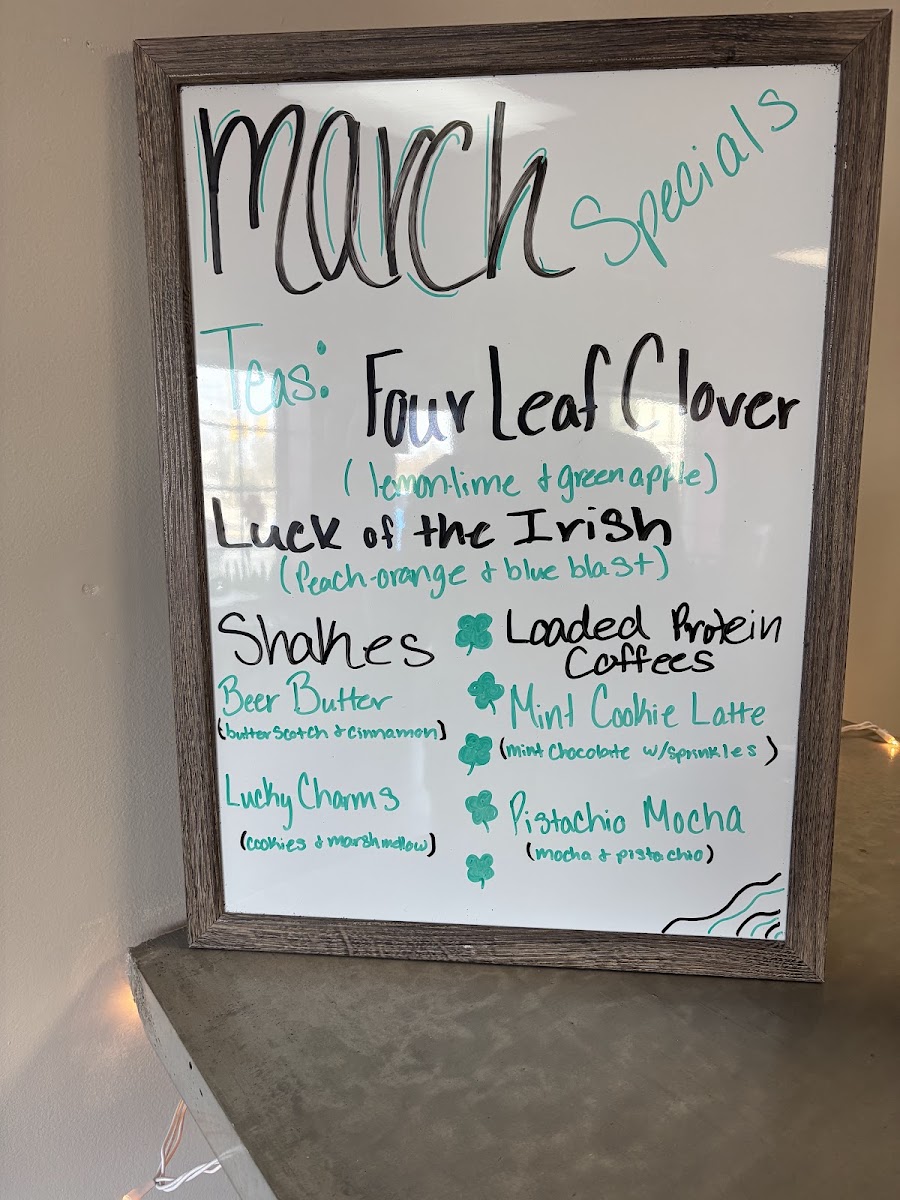 March Specials
Teas: Four Leaf Clover
(lemon-lime & green apple)
Luck of the Irish
(Peach-orange & blue blast)
Shakes
Beer Butter
(butterscotch & cinnamon)
Lucky Charms
(cookies & marshmellow)
Loaded Protein
Coffees
Mint Cookie Latte
(mint chocolate w/sprinkles)
Pistachio Mocha
(mocha & pistachio)